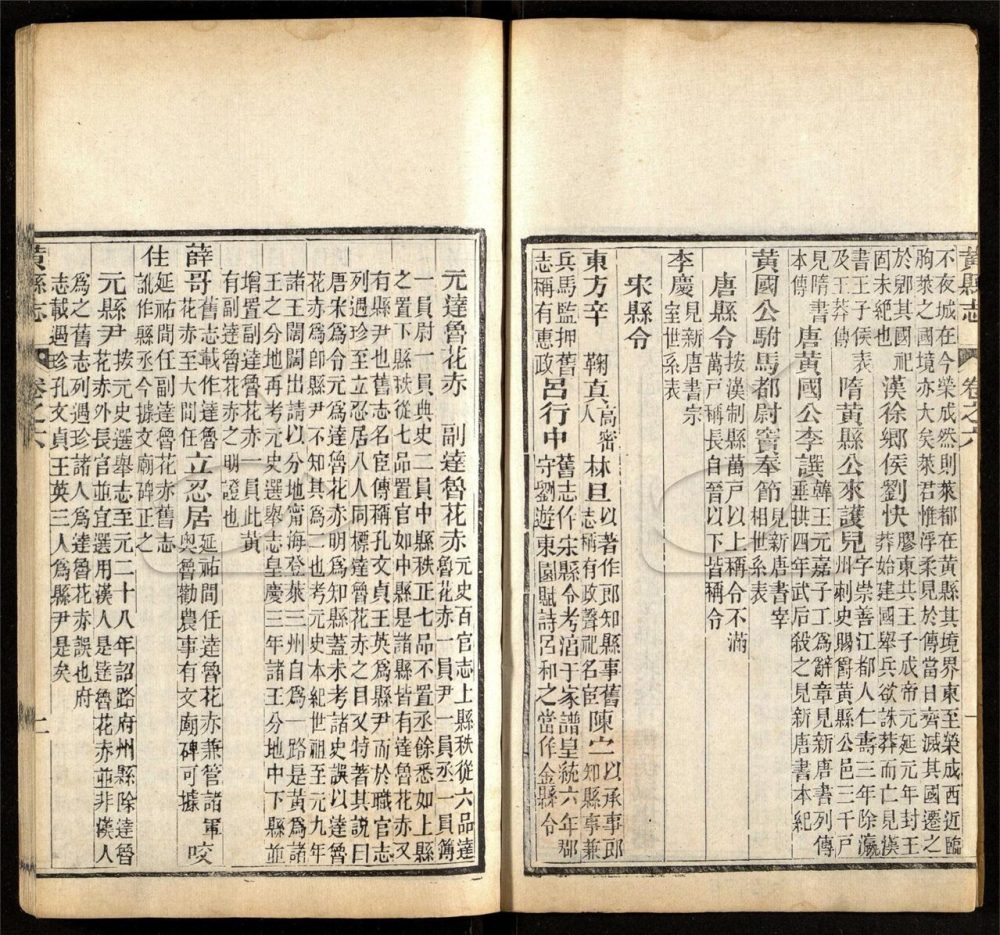 黃縣志 卷之六 一
不夜城在今榮成然則萊都在黃縣其境界東至榮成西近臨
朐萊之國境亦大矣萊君惟浮柔見於傳當日齊滅其國遷之
於郳其國祀
固未絕也
漢徐鄉侯劉快
膠東共王子成帝元延元年封王
莽始建國舉兵欲誅莽而亡見漢
書王子侯表
及王莽傳
隋黃縣公來護兒
字崇善江都人仁壽三年除瀛
州刺史賜爵黃縣公邑三千戶
見隋書
本傳
唐黃國公李譔
韓王元嘉子工爲辭章見新唐書列傳
垂拱四年武后殺之見新唐書本紀
黃國公駙馬都尉竇奉節
見新唐書宰
相世系表
唐縣令
按漢制縣萬戶以上稱令不滿
萬戶稱長自晉以下皆稱令
李慶
見新唐書宗
室世系表
宋縣令
東方辛
鞠真
高密
人
林旦
以著作郎知縣事舊
志稱有政聲祀名宦
陳宁
以承事郎
知縣事兼
兵馬監押舊
志稱有惠政
呂行中
舊志作宋縣令考滔于家譜皇統六年郡
守劉遊東園賦詩呂和之當作金縣令
元達魯花赤 副達魯花赤
元史百官志上縣秩從六品達
魯花赤一員尹一員丞一員簿
一員尉一員典史二員中縣秩正七品不置丞餘悉如上縣
之置下縣秩從七品置官如中縣是諸縣皆有達魯花赤又
有縣尹也舊志名宦傳稱孔文貞王英爲縣尹而於職官志
列過珍至立忍居八人同標達魯花赤之目又特著其說曰
唐宋爲令元爲達魯花赤明爲知縣蓋未考諸史誤以達魯
花赤爲卽縣尹不知其爲二也考元史本紀世祖至元九年
諸王闊闊出請以分地甯海登萊三州自爲一路是黃爲諸
王之分地再考元史選舉志皇慶三年諸王分地中下縣並
增置副達魯花赤一員此黃
有副達魯花赤之明證也
薛哥
舊志載作達魯
花赤至大間任
立忍居
延祐間任達魯花赤兼管諸軍
奧魯勸農事有文廟碑可據
咬
住
延祐間任副達魯花赤舊志
訛作縣丞今據文廟碑正之
元縣尹
按元史選舉志至元二十八年詔路府州縣除達魯
花赤外長官並宜選用漢人是達魯花赤並非漢人
爲之舊志列過珍諸人爲達魯花赤誤也府
志載過珍孔文貞王英三人爲縣尹是矣
黃縣志 卷之六 二